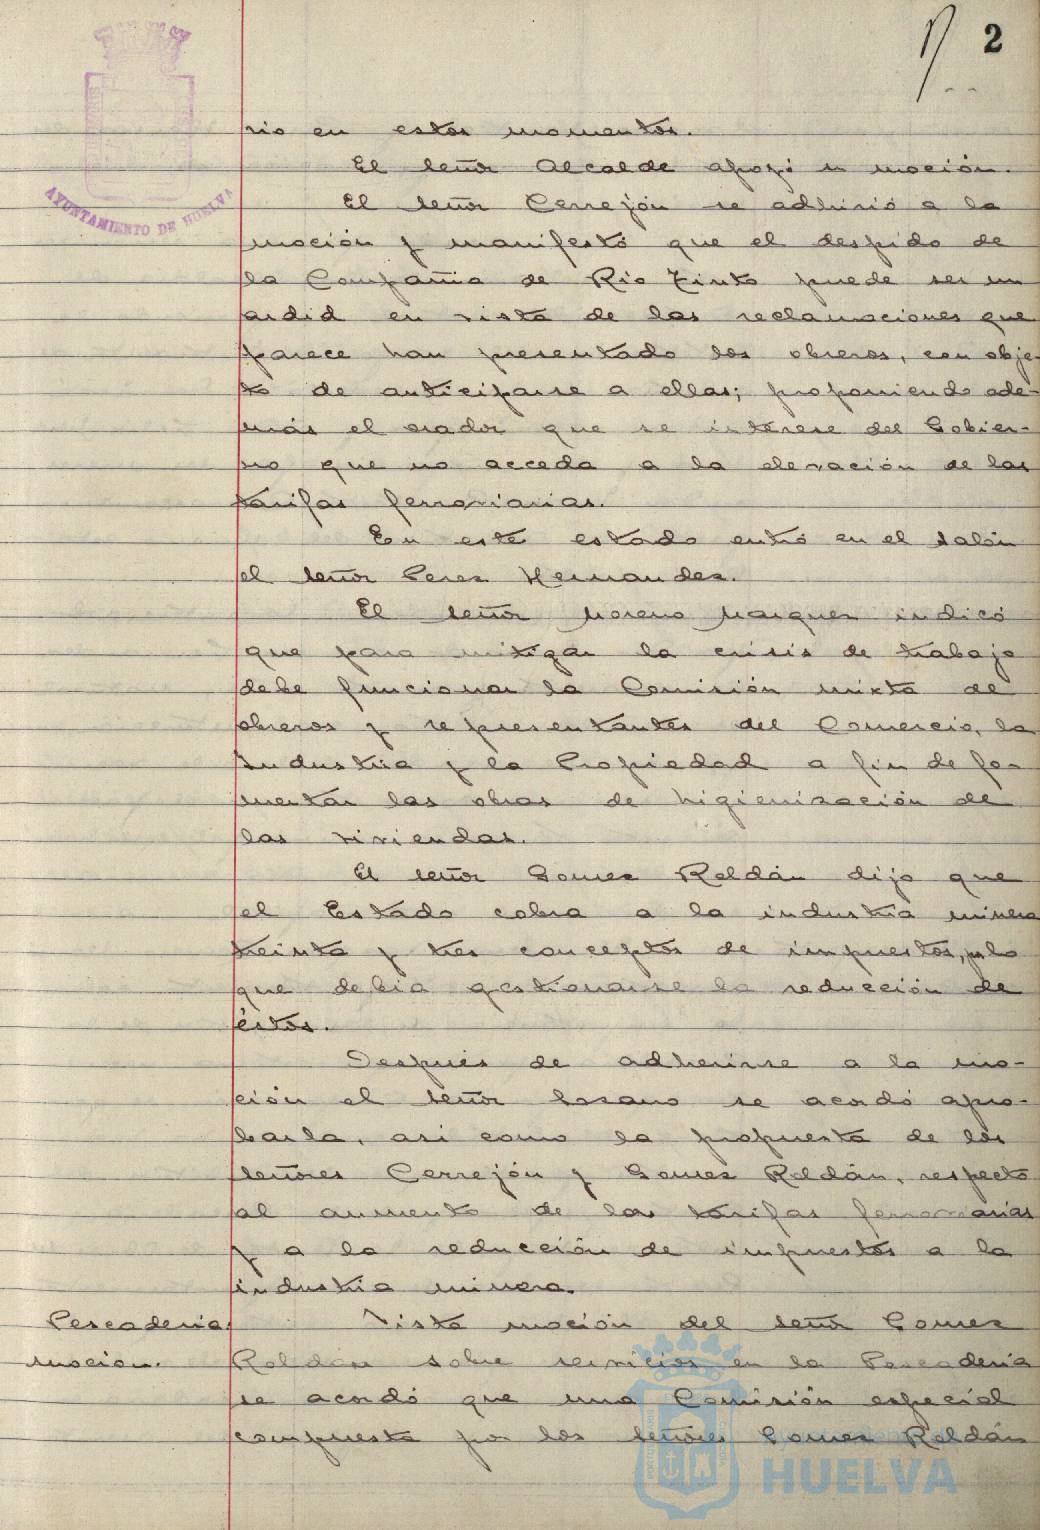 2
AYUNTAMIENTO DE HUELVA
rio en estos momentos.
El señor Alcalde apoyó su moción.
El señor Cerrejón se adhirió a la
moción y manifestó que el despido de
la Compañia de Rio Tinto puede ser un
ardid en vista de las reclamaciones que
parece han presentado los obreros, con obje-
to de anticiparse a ellas; proponiendo ade-
más el orador que se interese del Gobier-
no que no acceda a la elevación de las
tarifas ferroviarias.
En este estado entró en el salón
el señor Perez Hernandez.
El señor Moreno Marquez indicó
que para mitigar la crisis de trabajo
debe funcionar la Comisión mixta de
obreros y representantes del Comercio, la
Industria y la Propiedad a fin de fo-
mentar las obras de higienización de
las viviendas.
El señor Gomez Roldán dijo que
el Estado cobra a la industria minera
treinta y tres conceptos de impuestos, p. lo
que debia gestionarse la reducción de
éstos.
Después de adherirse a la mo-
ción el señor Lozano se acordó apro-
barla, asi como la propuesta de los
señores Cerrejón y Gomez Roldán, respecto
al aumento de las tarifas ferroviarias
y a la reducción de impuestos a la
industria minera.
Pescaderia,
moción.
Vista moción del señor Gomez
Roldán sobre servicios en la Pescaderia
se acordó que una Comisión especial
compuesta por los señores Gomez Roldán
HUELVA